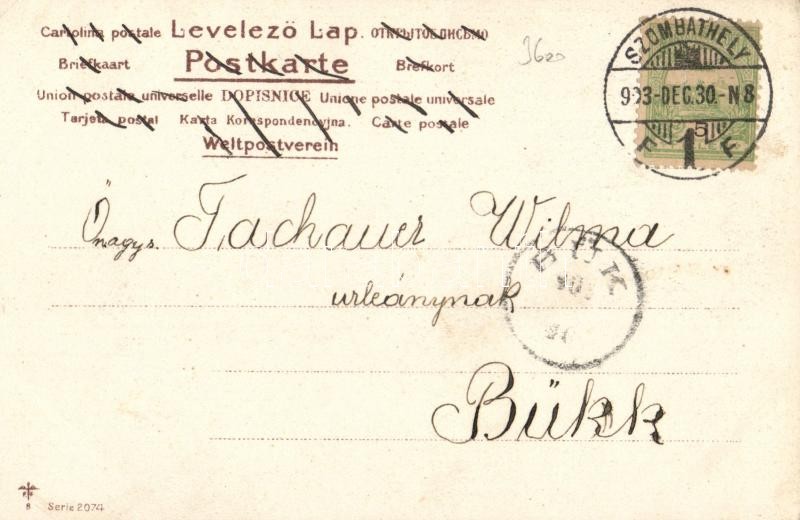 Cartolina postale Levelező Lap. ОТКРЫТОЕ ПИСЬМО
Briefkaart Postkarte Brefkort
Union postale universelle DOPISNICE Unione postale universale
Tarjeta postal Karta Korespondencyjna. Carte postale
Weltpostverein
3600
SZOMBATHELY
903-DEC.30.-N8
F 1 F
5
Önagys. Tachauer Wilma
urleánynak
BÜK
903
Bükk
8 Serie 2074